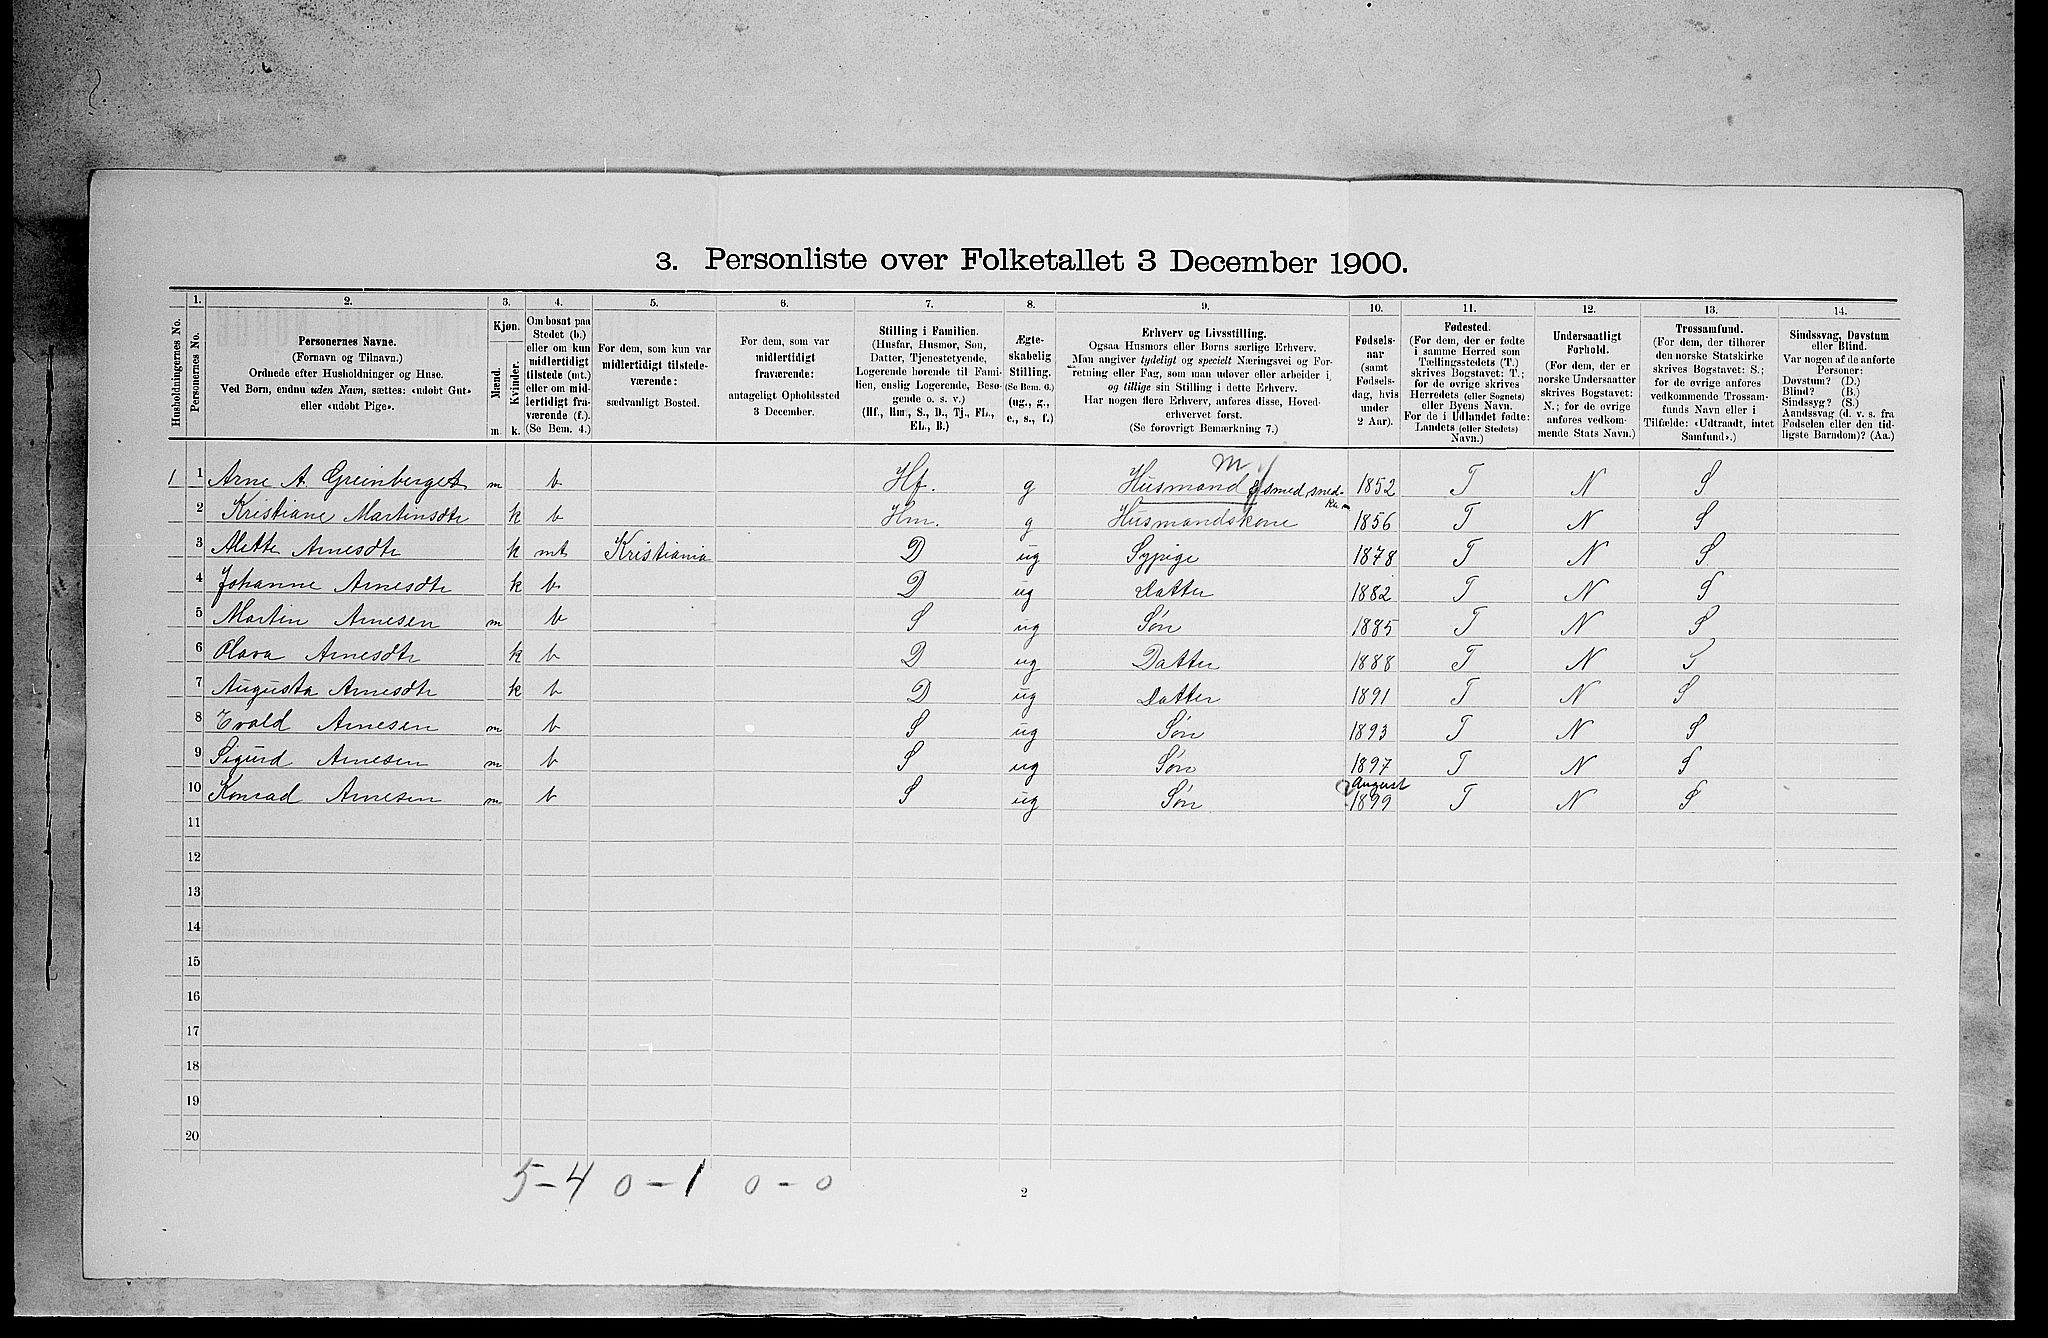 3. Personliste over Folketallet 3 December 1900.
Husholdningernes No.
1. Personernes No.
2. Personernes Navne.
(Fornavn og Tilnavn.)
Ordnede efter Husholdninger og Huse.
Ved Børn, endnu uden Navn, sættes: «udøbt Gut»
eller «udøbt Pige».
3. Kjøn.
Mænd. m
Kvinder. k.
4. Om bosat paa
Stedet (b.)
eller om kun
midlertidigt
tilstede (mt.)
eller om mid-
lertidigt fra-
værende (f.).
(Se Bem. 4.)
5. For dem, som kun var
midlertidigt tilstede-
værende:
sædvanligt Bosted.
6. For dem, som var
midlertidigt
fraværende:
antageligt Opholdssted
3 December.
7. Stilling i Familien.
(Husfar, Husmor, Søn,
Datter, Tjenestetyende,
Logerende hørende til Fami-
lien, enslig Logerende, Besø-
gende o. s. v.)
(Hf., Hm., S., D., Tj., FL.,
EL., B.)
8. Ægte-
skabelig
Stilling.
(Se Bem. 6.)
(ug., g.,
e., s., f.)
9. Erhverv og Livsstilling.
Ogsaa Husmors eller Børns særlige Erhverv.
Man angiver tydeligt og specielt Næringsvei og For-
retning eller Fag, som man udøver eller arbeider i,
og tillige sin Stilling i dette Erhverv.
Har nogen flere Erhverv, anføres disse, Hoved-
erhvervet først.
(Se forøvrigt Bemærkning 7.)
10. Fødsels-
aar
(samt
Fødsels-
dag, hvis
under
2 Aar).
11. Fødested.
(For dem, der er fødte
i samme Herred som
Tællingsstedets (T.)
skrives Bogstavet: T.;
for de øvrige skrives
Herredets (eller Sognets)
eller Byens Navn.
For de i Udlandet fødte:
Landets (eller Stedets)
Navn.)
12. Undersaatligt
Forhold.
(For dem, der er
norske Undersaatter
skrives Bogstavet:
N.; for de øvrige
anføres vedkom-
mende Stats Navn.)
13. Trossamfund.
(For dem, der tilhører
den norske Statskirke
skrives Bogstavet: S.;
for de øvrige anføres
vedkommende Trossam-
funds Navn eller i
Tilfælde: «Udtraadt, intet
Samfund».)
14. Sindssvag, Døvstum
eller Blind.
Var nogen af de anførte
Personer:
Døvstum? (D.)
Blind? (B.)
Sindssyg? (S.)
Aandssvag (d. v. s. fra
Fødselen eller den tid-
ligste Barndom)? (Aa.)
1 1 Arne A. m b Hf. g Husmand M smed snedker 1852 T N S
2 Kristiane Martinsdtr k b Hm. g Husmandskone 1856 T N S
3 Alette Arnesdtr k mt Kristiania D ug Sypige 1878 T N S
4 Johanne Arnesdtr k b D ug Datter 1882 T N S
5 Martin Arnesen m b S ug Søn 1885 T N S
6 Olava Arnesdtr k b D ug Datter 1888 T N S
7 Augusta Arnesdtr k b D ug Datter 1891 T N S
8 Evald Arnesen m b S ug Søn 1893 T N S
9 Sigurd Arnesen m b S ug Søn 1897 T N S
10 Konrad Arnesen m b S ug Søn August 1899 T N S
11
12
13
14
15
16
17
18
19
20
5-4 0-1 0-0
2